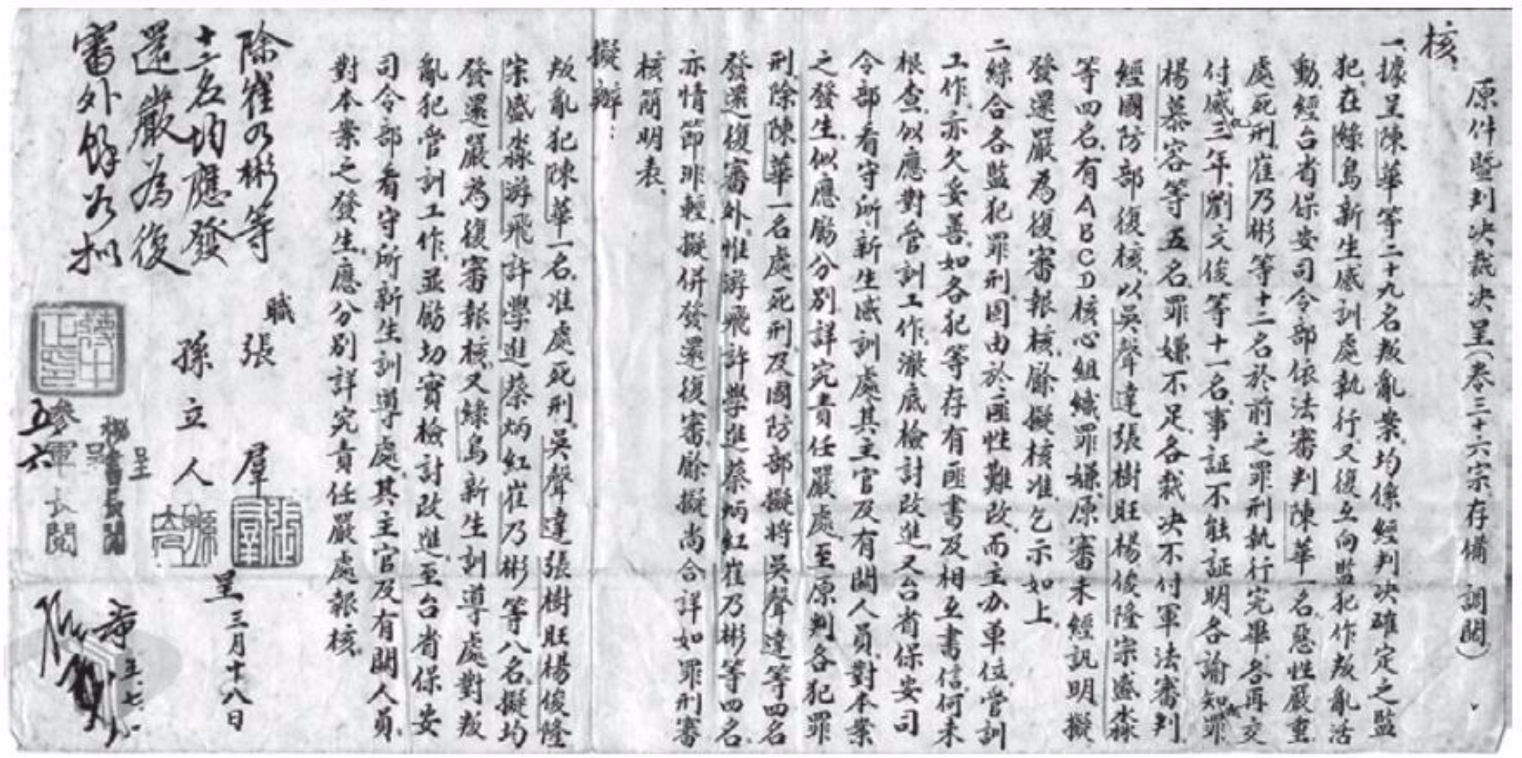 核
原件暨判決裁決呈(卷三十六宗存備調閱)
一、據呈陳華等二十九名叛亂案、均係經判決確定之監
犯、在綠島新生感訓處執行、又復互向監犯作叛亂活
動、經台省保安司令部依法審判、陳華一名惡性嚴重
處死刑、崔乃彬等十二名於前之罪刑執行完畢各再交
付感化三年、劉文俊等十一名、事証不能証明各諭知無罪、
楊慕容等五名罪嫌不足、各裁決不付軍法審判、
經國防部復核、以吳聲達張樹旺楊俊隆宗盛淼
等四名、有ABCD核心組織罪嫌、原審未經訊明、擬
發還嚴為復審報核、餘擬核准、乞示如上、
二、綜合各監犯罪刑、固由於匪性難改、而主办單位管訓
工作、亦欠妥善、如各犯等存有匪書及相互書信、何未
根查、似應對管訓工作、澈底檢討改進、又台省保安司
令部看守所新生感訓處、其主官及有關人員、對本案
之發生、似應飭分別詳究責任嚴處、至原判各犯罪
刑、除陳華一名處死刑、及國防部擬將吳聲達等四名
發還復審外、惟游飛許學進蔡炳紅崔乃彬等四名、
亦情節非輕、擬併發還復審、餘擬尚合、詳如罪刑審
核簡明表、
擬辦:
叛亂犯陳華一名、准處死刑、吳聲達張樹旺楊俊隆
宋盛淼游飛許學進蔡炳紅崔乃彬等八名、擬均
發還嚴為復審報核、又綠島新生訓導處、對叛
亂犯管訓工作、並飭切實檢討改進、至台省保安
司令部看守所新生訓導處、其主官及有關人員、
對本案之發生、應分別詳究責任嚴處報核、
職張羣
孫立人
呈三月十八日
除崔乃彬等
十二名均應發
還嚴為復
審外餘如擬
蔣中正印
呈
秘書長閱
參軍長閱
五六